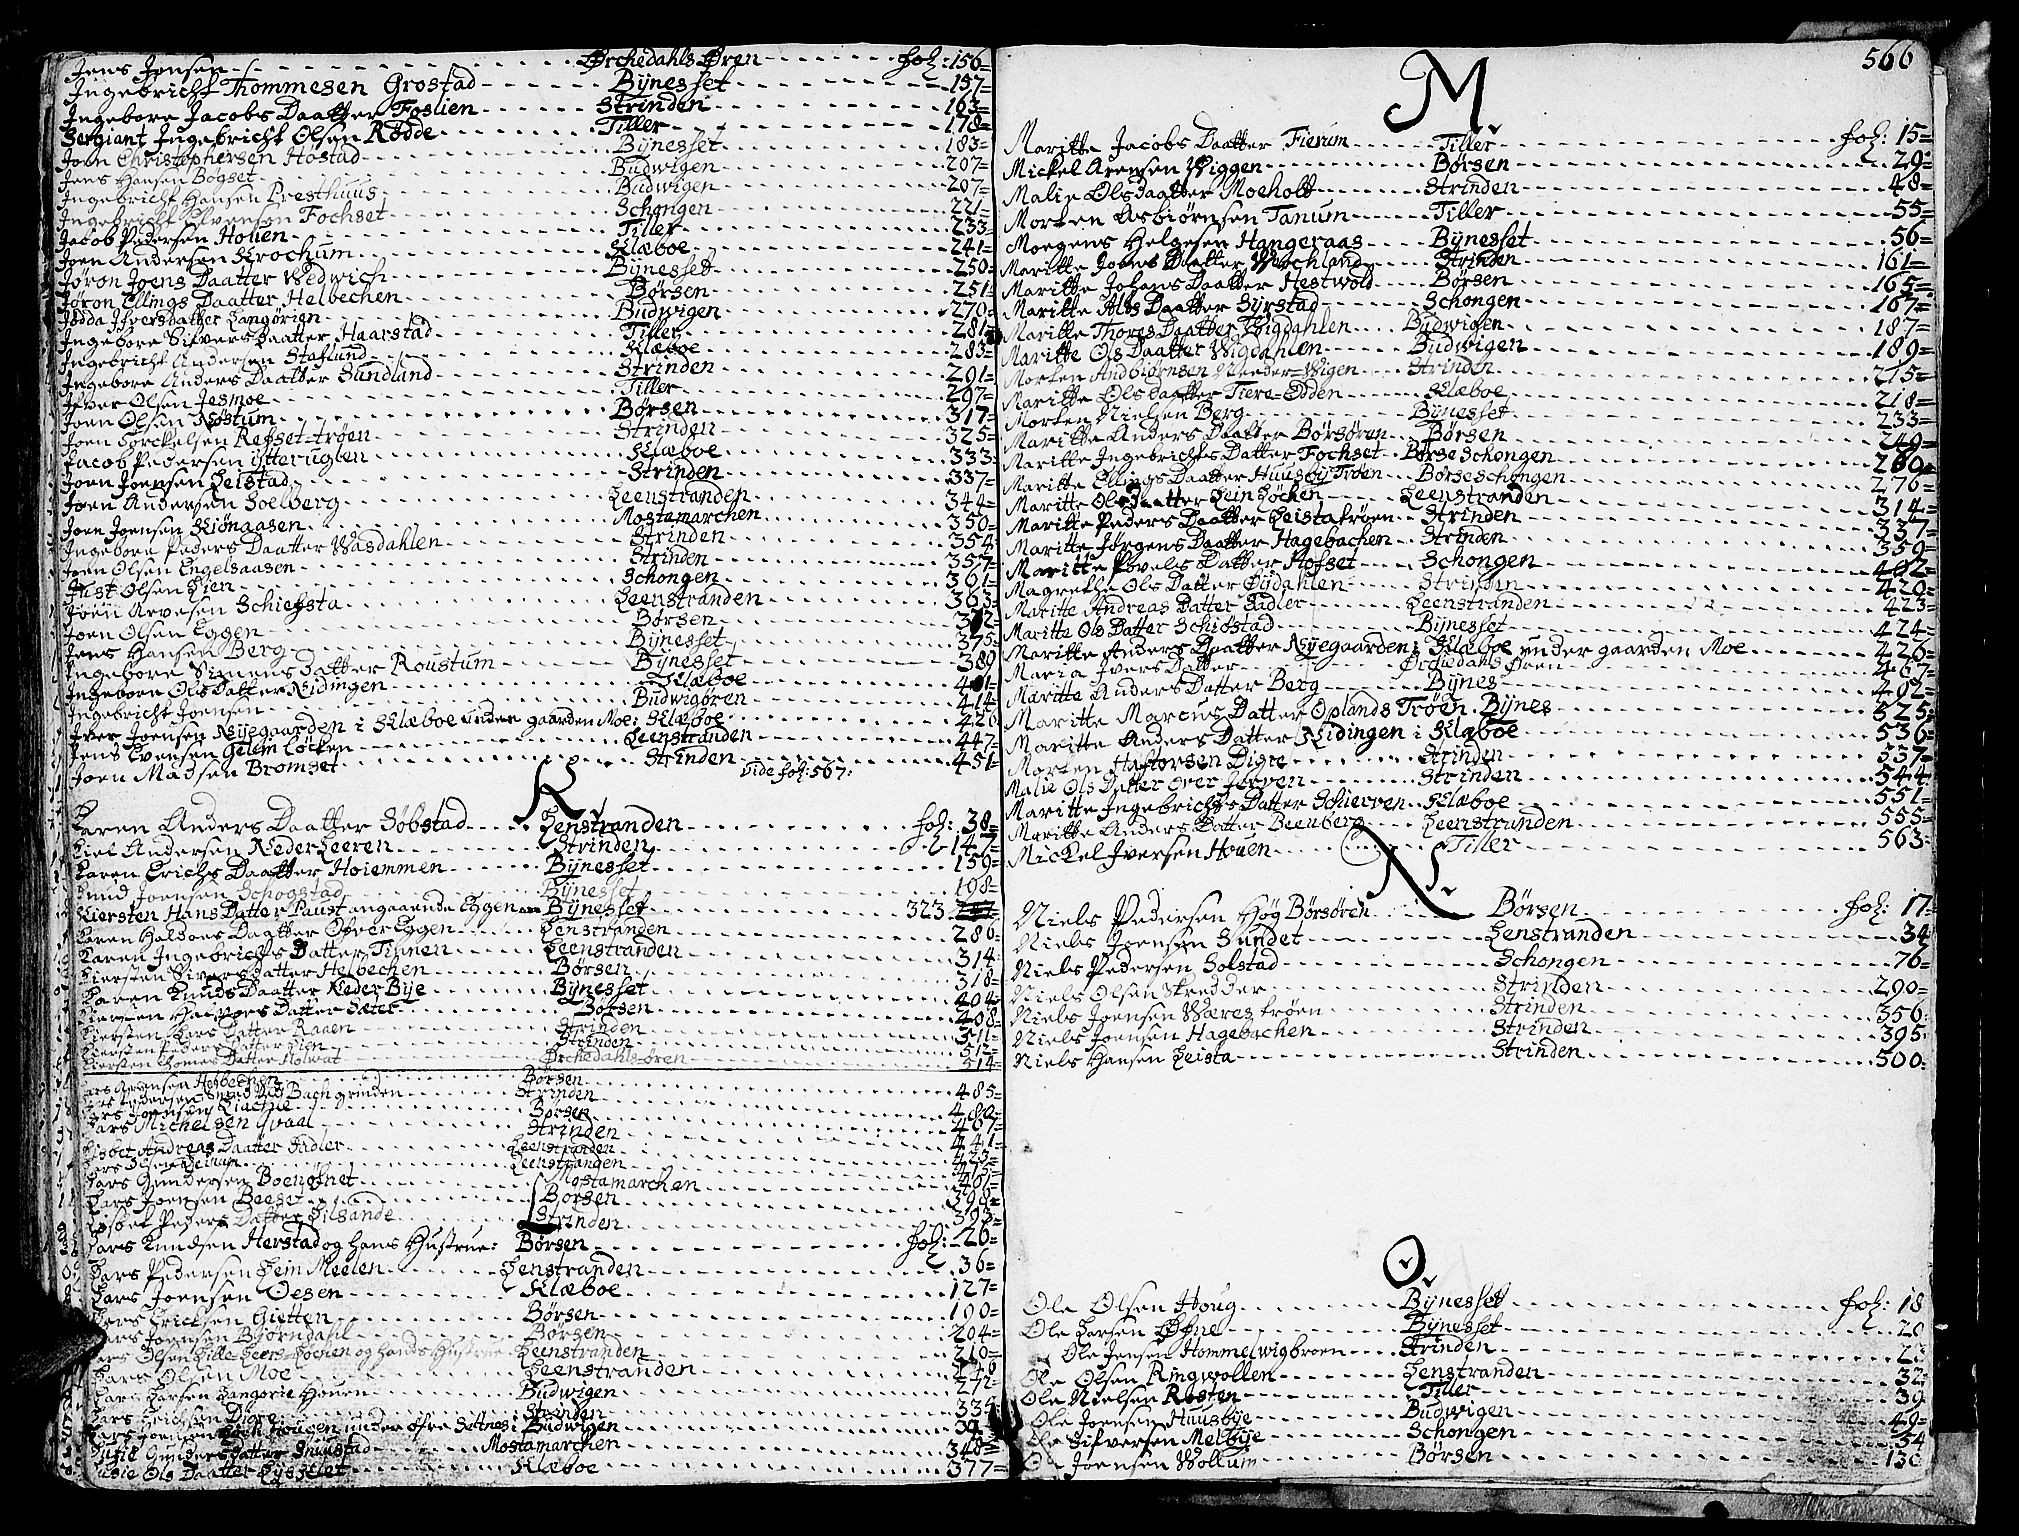 Jens Jensen Ørchedahls Øren fol: 156=
Ingebricht Thommesen Grostad Bÿnesset 157=
Ingebore Jacobs Daatter Foslien Strinden 163=
Sergiant Ingebricht Olsen Rødde Tiller 178=
Joen Christophersen Hostad Bÿnesset 183=
Jens Hansen Bogset Budwigen 207=
Ingebricht Hansen Presthuus Budwigen 207=
Ingebricht Elvensen Fochset Schongen 221=
Jacob Pedersen Holien Tiller 233=
Joen Andersen Krochum Klæboe 241=
Jøron Joens Daatter Wedwich Bÿnesset 250=
Jøron Ellings Daatter Helbechen Børsen 251=
Jødda Ifversdatter Langørien Budwigen 270=
Ingebore Sifvers Daatter Haarstad Tiller 281=
Ingebricht Andersen Staflund Klæboe 283=
Ingebore Anders Daatter Sundland Strinden 291=
Ifver Olsen Jesmoe Tiller 297=
Joen Olsen Nøstum Børsen 317=
Joen Torckelsen Refset-trøen Strinden 325=
Jacob Pedersen Ÿtteruglen Klæboe 333=
Joen Joensen Leistad Strinden 337=
Joen Andersen Solberg Leenstranden 344=
Joen Joensen Kiønaasen Mostamarchen 350=
Ingebore Peders Daatter Wasdahlen Strinden 354
Joen Olsen Engelsaasen Strinden 357=
Just Olsen Lien Schongen 361=
Joen Arvesen Schiefsta Leenstranden 363=
Joen Olsen Eggen Børsen
Jens Hansen Berg Bÿnesset 375=
Ingebore Simens Datter Roustum Bÿnesset 389
Ingeborn Ols Datter Nidingen Klæboe
Ingebricht Joensen Budwigøren 414
Iver Joensen Nÿegaarden i Klæboe under gaarden Moe: Klæboe 426
Jens Evensen Gelem Løcken Leenstranden 447=
Joen Madsen Bromset Strinden 451=
vide fol: 567:
K
Karen Anders Daatter Søbstad Lenstranden fol: 38=
Kiel Andersen Neder Leeren Strinden 147=
Karen Erichs Daatter Hoiemmen Bÿnesset 159=
Knud Joensen Schogstad Bÿnesset 198=
Kiersten Hans Datter Paust angaaende Eggen Bÿnesset 323
Karen Haldoes Daatter Ofver Eggen Lenstranden 286=
Karen Ingebrichts Datter Tinnen Leenstranden 314
Kiersten Sivers Datter Helbechen Børsen 318=
Karen Knuds Daatter Neder Bÿe Bÿnesset 404
Kiersten Halvors Datter Sæter Børsen 408=
Kiersten Lars Datter Raaen Strinden 511=
Kiersten Peders Datter Lien Strinden 512=
Kiersten Thomes Datter Holwat Ørchedahlsøren 514=
Lars Arvensen Helbechen Børsen 485=
Lars Pedersen Smed ved Bach grinden Strinden 480=
Lars Joensen Børsen 467=
Lars Michelsen Qvaal Strinden 441=
Lisbet Andreas Daatter Sadler Leenstranden 423=
Lars Leenstranden 415=
Lars Gundersen Boengnet Mostamarchen 401=
Lars Joensen Beeset Børsen 398=
Lisbet Peders Datter Lilsande Strinden 393=
Lars Knudsen Herstad og hans Hustrue: Børsen fol: 26=
Lars Pedersen Lein Meelen Lenstranden 36=
Lars Joensen Oesen Klæboe 127=
Lars Ericksen Gietten Børsen 190=
Lars Joensen Bjørndahl Børsen 204=
Lars Olsen Lille-Leers-Løchen og hands Hustrue Leenstranden 210=
Lars Olsen Moe Leenstranden
Lars Larsen Langørie Houen Budwigen 272=
Lars Ericksen Digre Strinden 334
Lars Joensen under øfre Sætnes: Budwigen
Lusie Gunders datter Snuustad Mostamarchen 348=
Lusie Ols Daatter Klæboe 377=
566
M
Maritte Jacobs Daatter Fierum Tiller fol: 15=
Mickel Arensen Wiggen Børsen 29=
Malie Olsdaatter Moeholt Strinden 48=
Morten Asbiørnsen Tanum Tiller 55=
Mogens Helgesen Hangeraas Bÿnesset 56=
Maritte Joens Daatter Werchland Strinden 161=
Maritte Johans Daatter Hestwold Børsen 165=
Maritte Alds Daatter Sÿrstad Schongen 167=
Maritte Thores Daatter Wigdahlen Budwigen 187=
Maritte Ols Daatter Wigdahlen Budwigen 189=
Morten Andbiørnsen Neder-Wigen Strinden 215=
Maritte Olsdaatter Tiere-Odden Klæboe 218=
Morten Nielsen Berg Bÿnesset 233=
Maritte Anders Daatter Børsøren Børsen 249=
Maritte Ingebrichts Datter Fochset Børse Schongen 260=
Maritte Ellings Daatter Huusbÿ Trøen Børse Schongen 276=
Maritte Olsdaatter Lein Løchen Leenstranden 314=
Maritte Peders Daatter Leistatrøen Strinden 337=
Maritte Jørgens Daatter Hagebachen Strinden 359=
Maritte Povels Datter Hofset Schongen 402=
Magrethe Ols Datter Øÿdahlen Strinden 420=
Maritte Andreas Datter Sadler Leenstranden 423=
Maritte Ols Datter Schiøstad Bÿnesset 424=
Maritte Anders Daatter Nÿegaarden i Klæboe under gaarden Moe 426=
Maria Ivers Datter Ørchedahls Øren 467=
Maritte Anders Datter Berg Bÿnes 492=
Maritte Marcus Datter Oplands Trøen Bÿnes 525=
Maritte Anders Datter Nidingen i Klæboe 536=
Morten Haftorsen Digre Strinden 337=
Malie Ols Datter Over Jerven Strinden 544
Maritte Ingebrichts Datter Schierven Klæboe 551=
Maritte Anders Datter Beenberg Leenstranden 555=
Mickel Iversen Houen Tiller 563:
N
Niels Pedersen Høg Børsøren Børsen fol: 17=
Niels Joensen Sundet Lenstranden 34
Niels Pedersen Solstad Schongen 76=
Niels Olsen Skredder Strinden 290=
Niels Joensen Wæres trøen Strinden 356:
Niels Joensen Hagebachen Strinden 395:
Niels Hansen Leista Strinden 500:
O
Ole Olsen Houg Bÿnesset fol: 18
Ole Larsen Øfne Bÿnesset 20
Ole Jensen Hommelwigbroen Strinden 23
Ole Olsen Ringwollen Lenstranden 32
Ole Nielsen Røsten Tiller 39
Ole Joensen Huusbÿe Budwigen 49=
Ole Sifversen Melbÿe Schongen 54
Ole Joensen Wollum Børsen